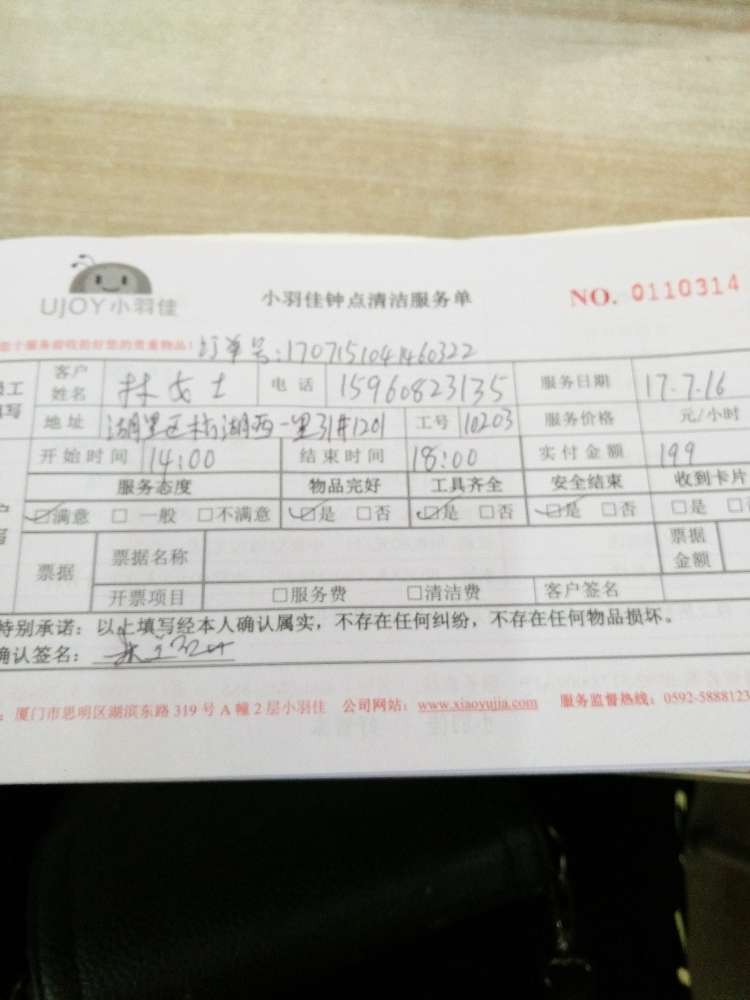 UJOY小羽佳
小羽佳钟点清洁服务单
NO. 0110314
服务前收拾好您的贵重物品!
订单号:1707151041460322
客户姓名 林女士 电话 15960823135 服务日期 17.7.16
地址 湖里区 湖西一里31#1201 工号 10203 服务价格 元/小时
开始时间 14:00 结束时间 18:00 实付金额 199
服务态度 物品完好 工具齐全 安全结束 收到卡片
☑满意 □一般 □不满意 ☑是 □否 ☑是 □否 ☑是 □否 □是 □
票据 票据名称 票据金额
开票项目 □服务费 □清洁费 客户签名
特别承诺:以上填写经本人确认属实,不存在任何纠纷,不存在任何物品损坏。
确认签名:
:厦门市思明区湖滨东路 319 号 A 幢 2 层小羽佳 公司网站:www.xiaoyujia.com 服务监督热线:0592-5888123